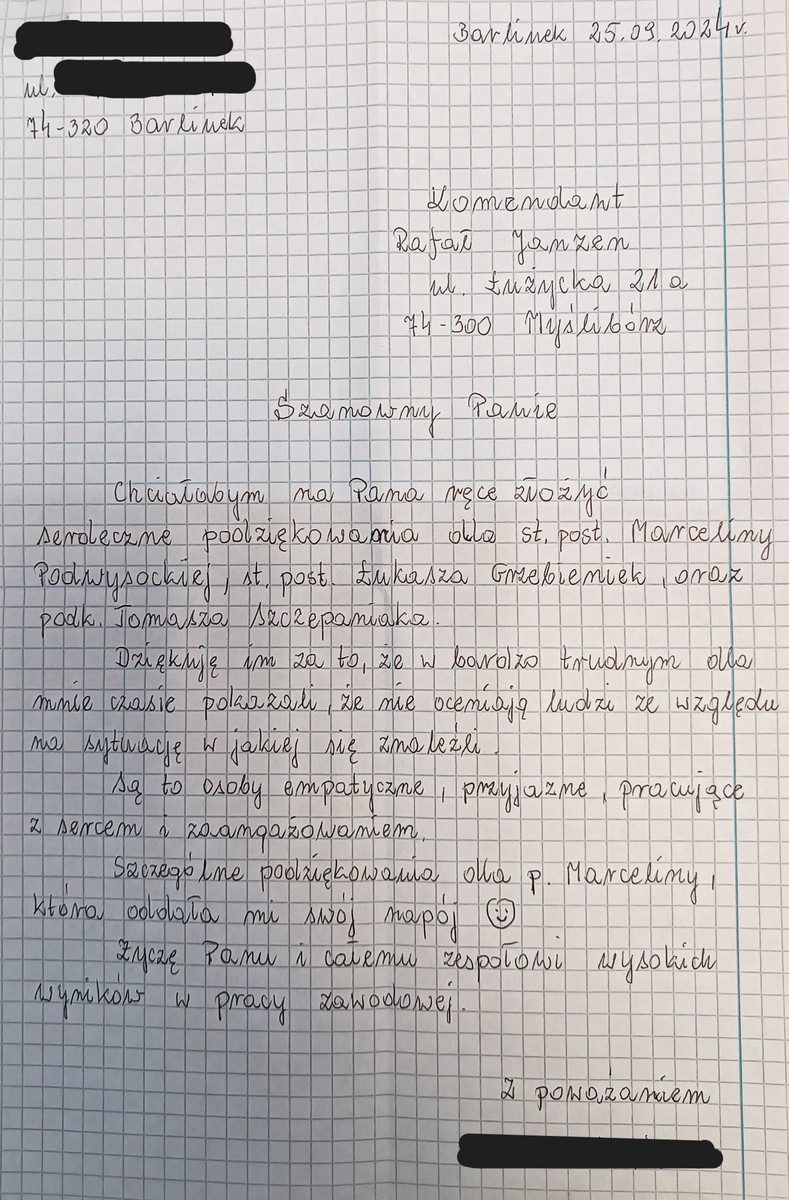 Barlinek 25.09.2024r.
ul.
74-320 Barlinek
Komendant
Rafał Janzen
ul. Łużycka 21a
74-300 Myślibórz
Szanowny Panie
Chciałabym na Pana ręce złożyć
serdeczne podziękowania dla st. post. Marceliny
Podwysockiej, st. post. Łukasza Grzebieniek, oraz
podk. Tomasza Szczepaniaka.
Dziękuję im za to, że w bardzo trudnym dla
mnie czasie pokazali, że nie oceniają ludzi ze względu
na sytuację w jakiej się znaleźli.
Są to osoby empatyczne, przyjazne, pracujące
z sercem i zaangażowaniem.
Szczególne podziękowania dla p. Marceliny,
która oddała mi swój napój ☺
Życzę Panu i całemu zespołowi wysokich
wyników w pracy zawodowej.
Z poważaniem